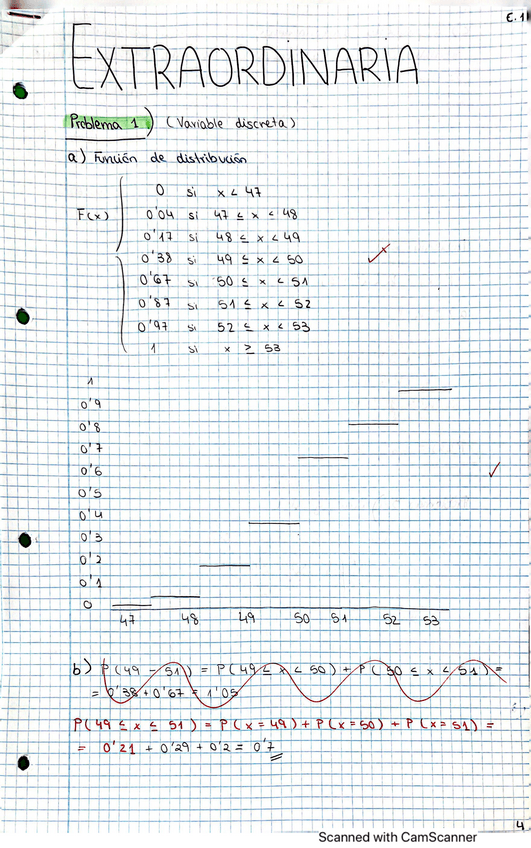 E.1
EXTRAORDINARIA
Problema 1) (Variable discreta)
a) Función de distribución
0 si x < 47
F(x) 0'04 si 47 ≤ x < 48
0'17 si 48 ≤ x < 49
0'38 si 49 ≤ x < 50
0'67 si 50 ≤ x < 51
0'87 si 51 ≤ x < 52
0'97 si 52 ≤ x < 53
1 si x ≥ 53
1
0'9
0'8
0'7
0'6
0'5
0'4
0'3
0'2
0'1
0
47 48 49 50 51 52 53
b) P(49 - 51) = P(49 ≤ x < 50) + P(50 ≤ x < 51) =
= 0'38 + 0'67 = 1'05
P(49 ≤ x ≤ 51) = P(x = 49) + P(x = 50) + P(x = 51) =
= 0'21 + 0'29 + 0'2 = 0'7
4
Scanned with CamScanner